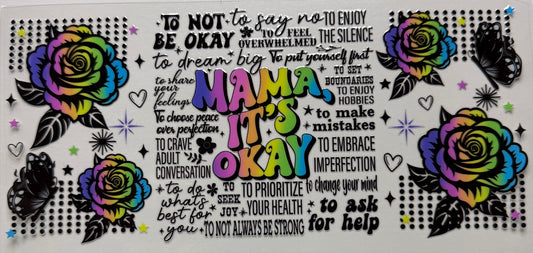 TO NOT BE OKAY
to say no
TO FEEL OVERWHELMED
TO ENJOY THE SILENCE
to dream big
To put yourself first
to share your feelings
MAMA,
IT'S
OKAY
TO SET BOUNDARIES
TO ENJOY HOBBIES
To choose peace over perfection
to make mistakes
TO CRAVE ADULT CONVERSATION
TO EMBRACE IMPERFECTION
to do what's best for you
TO SEEK JOY
TO PRIORITIZE YOUR HEALTH
to change your mind
TO NOT ALWAYS BE STRONG
to ask for help